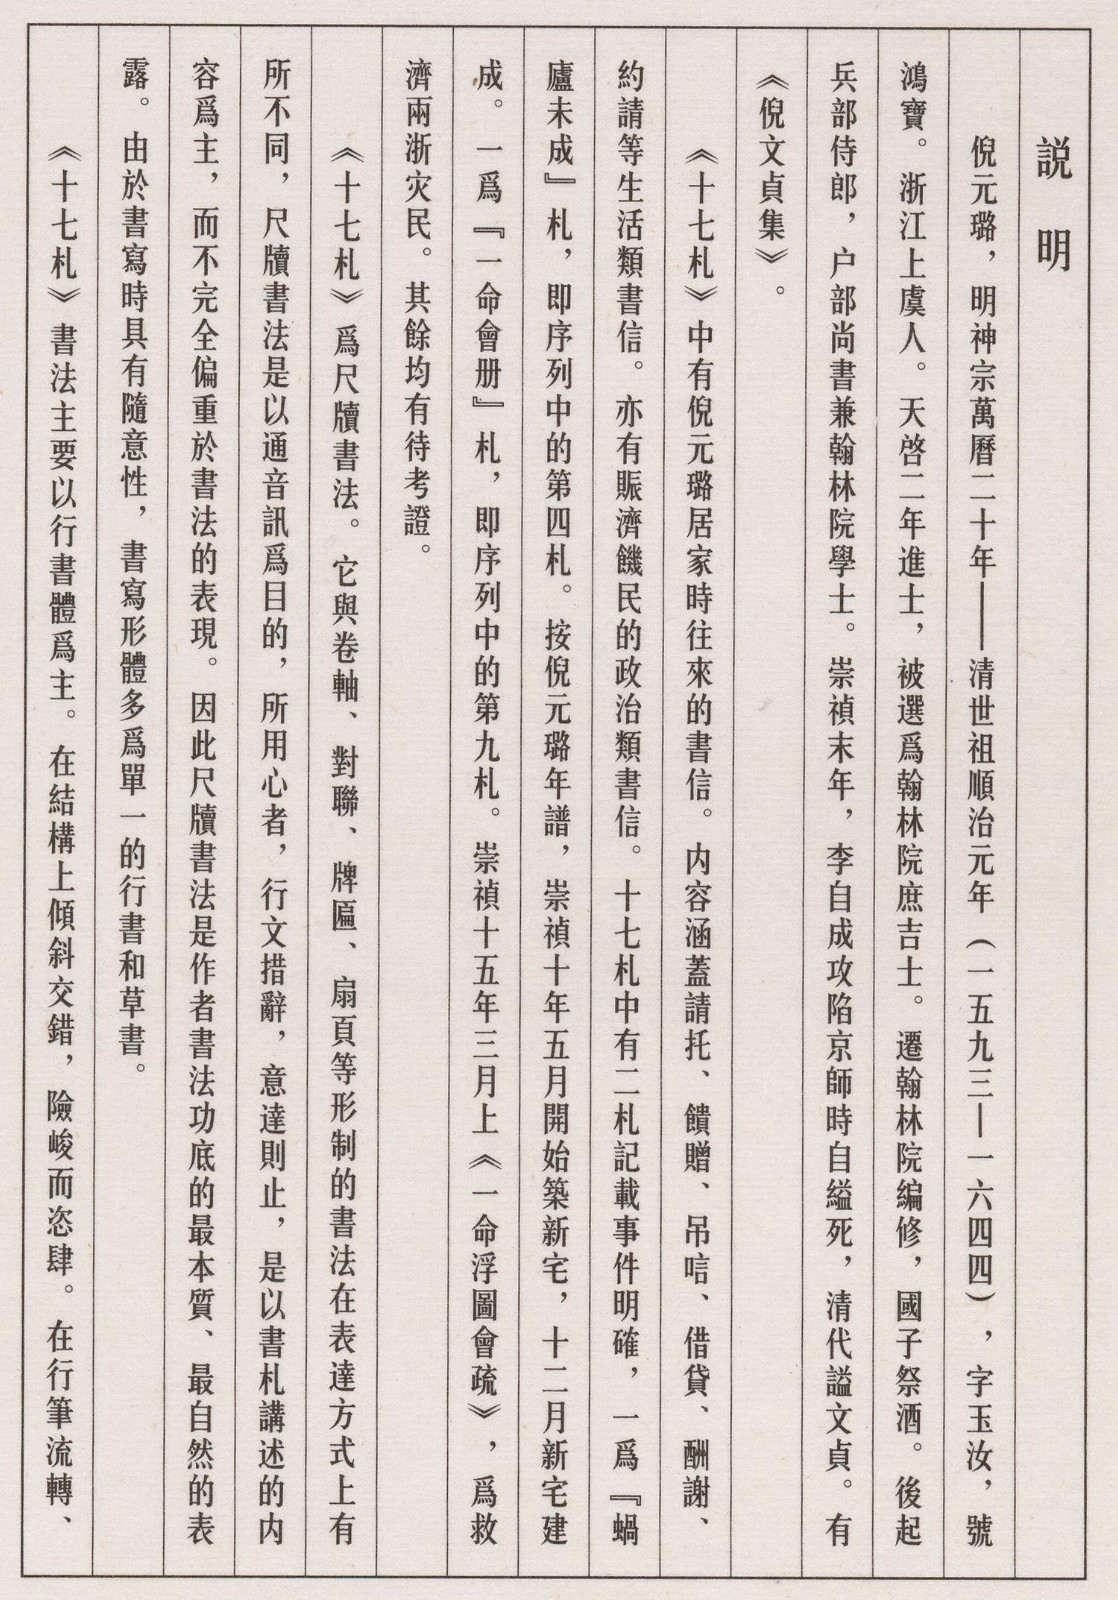 説明
倪元璐，明神宗萬曆二十年——清世祖順治元年（一五九三—一六四四），字玉汝，號
鴻寶。浙江上虞人。天啓二年進士，被選爲翰林院庶吉士。遷翰林院編修，國子祭酒。後起
兵部侍郎，户部尚書兼翰林院學士。崇禎末年，李自成攻陷京師時自縊死，清代謚文貞。有
《倪文貞集》。
《十七札》中有倪元璐居家時往來的書信。内容涵蓋請托、饋贈、吊唁、借貸、酬謝、
約請等生活類書信。亦有賑濟饑民的政治類書信。十七札中有二札記載事件明確，一爲『蝸
廬未成』札，即序列中的第四札。按倪元璐年譜，崇禎十年五月開始築新宅，十二月新宅建
成。一爲『一命會册』札，即序列中的第九札。崇禎十五年三月上《一命浮圖會疏》，爲救
濟兩浙灾民。其餘均有待考證。
《十七札》爲尺牘書法。它與卷軸、對聯、牌匾、扇頁等形制的書法在表達方式上有
所不同，尺牘書法是以通音訊爲目的，所用心者，行文措辭，意達則止，是以書札講述的内
容爲主，而不完全偏重於書法的表現。因此尺牘書法是作者書法功底的最本質、最自然的表
露。由於書寫時具有隨意性，書寫形體多爲單一的行書和草書。
《十七札》書法主要以行書體爲主。在結構上傾斜交錯，險峻而恣肆。在行筆流轉、